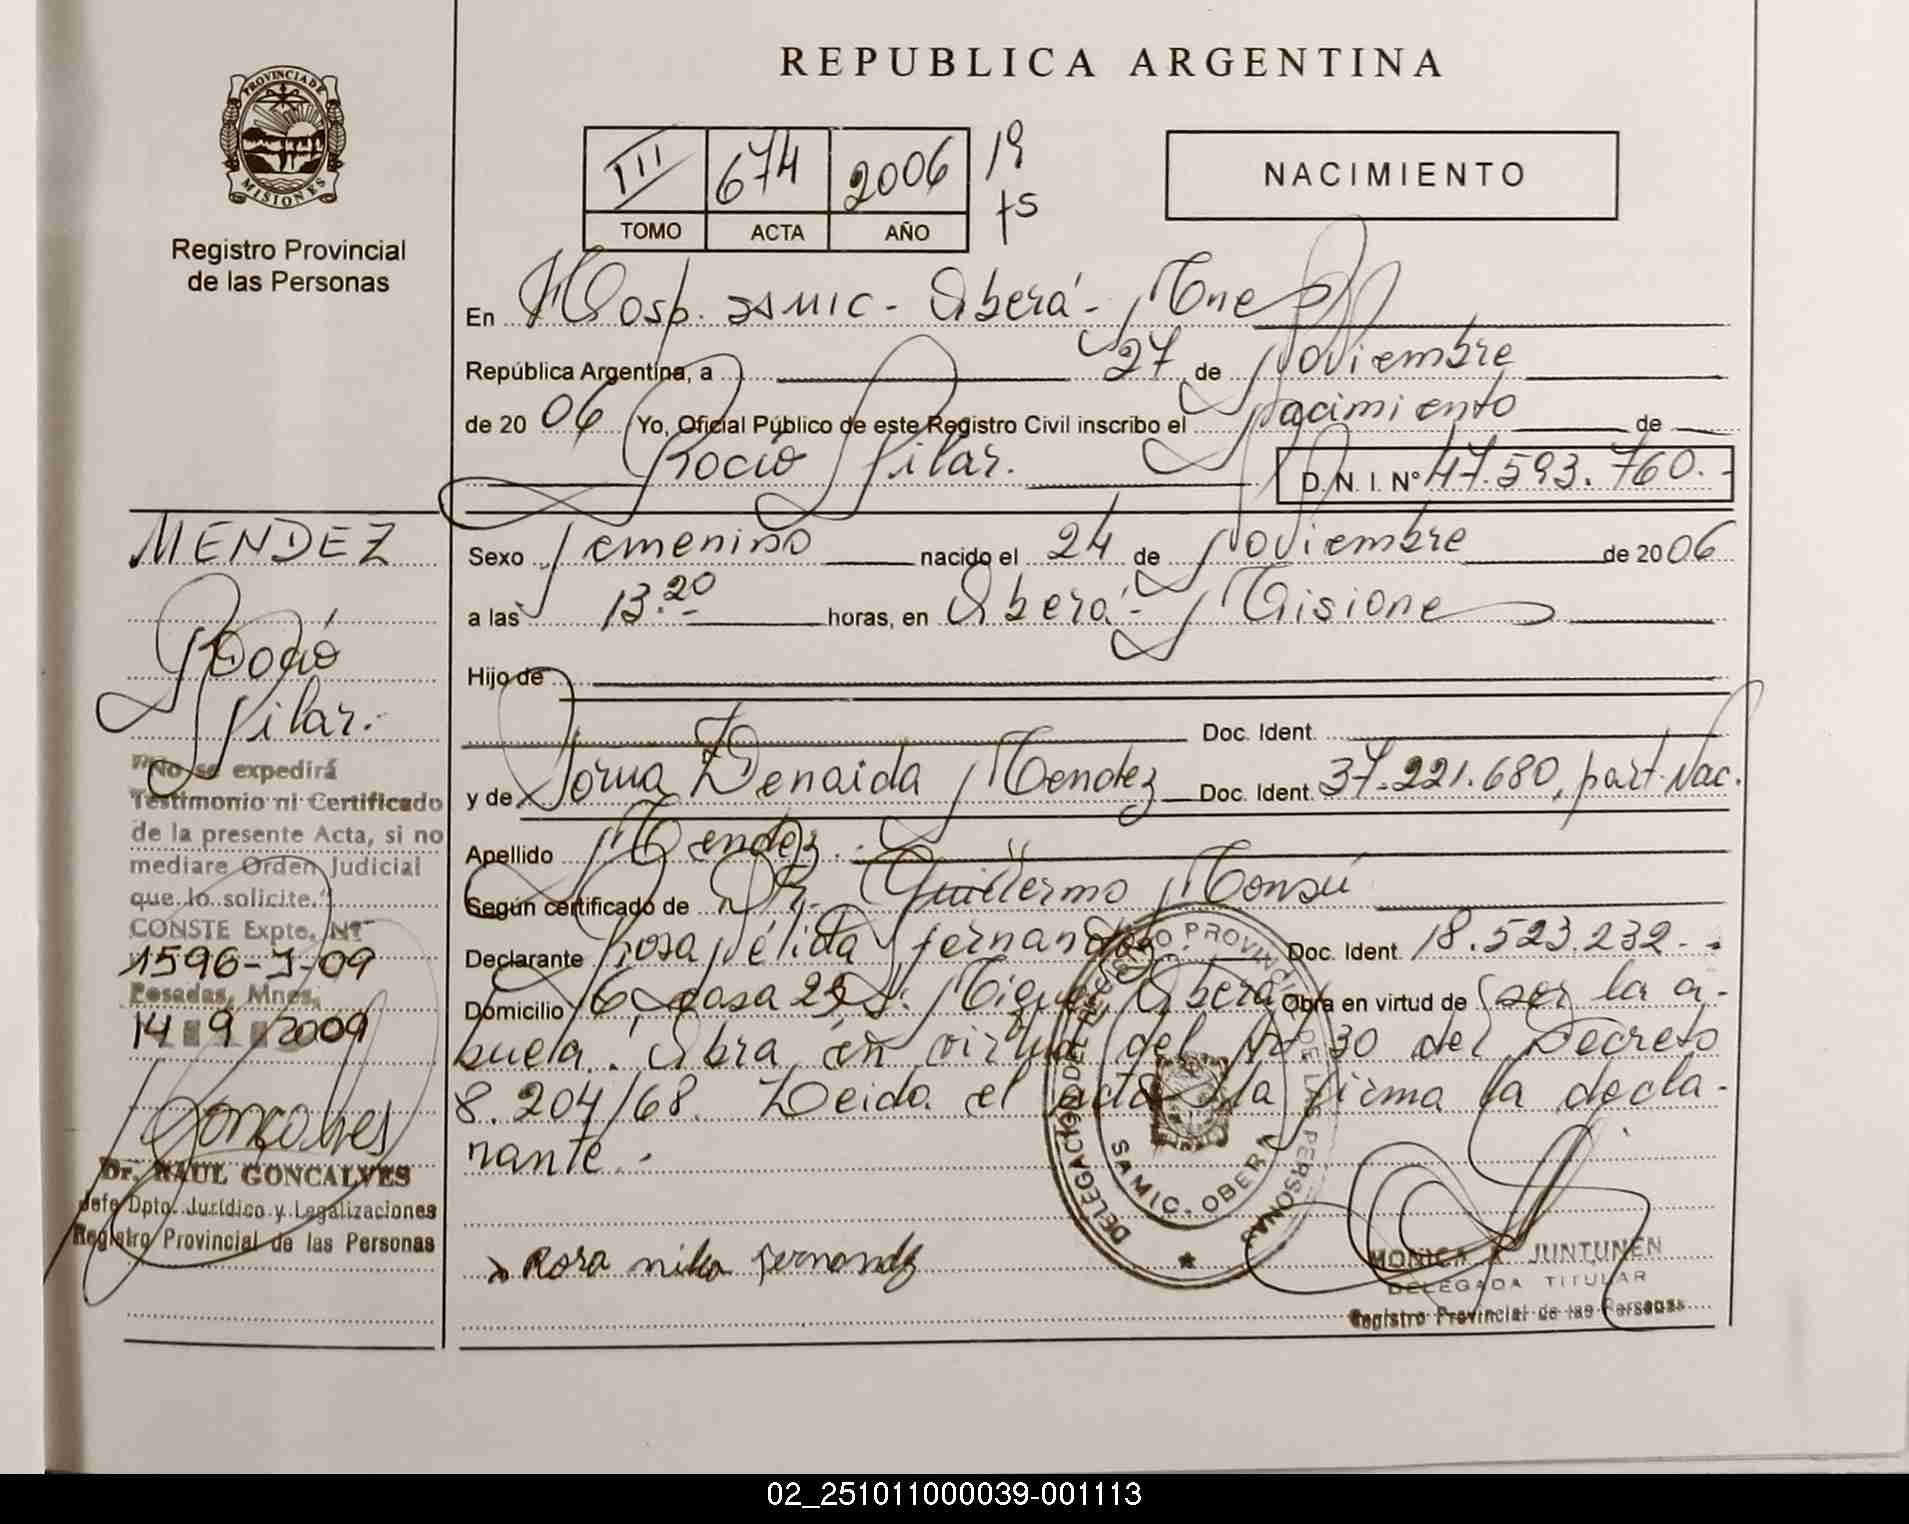 REPUBLICA ARGENTINA
PROVINCIA DE MISIONES
Registro Provincial
de las Personas
III 674 2006 19
TOMO ACTA AÑO
NACIMIENTO
En Hosp. SAMIC - Oberá - Mnes
República Argentina, a 27 de Noviembre
de 2006 Yo, Oficial Público de este Registro Civil inscribo el Nacimiento de
Rocío Pilar. D.N.I. Nº 47.593.760.-
Sexo femenino nacido el 24 de Noviembre de 2006
a las 13.20 horas, en Oberá - Misiones
Hijo de
Doc. Ident.
y de Zenaida Mendez Doc. Ident. 37.221.680, part. Nac.
Apellido Mendez.
Según certificado de Dr. Guillermo
Declarante Rosa Nélida Fernandez. Doc. Ident. 18.523.232.-
Domicilio casa 29 Oberá Obra en virtud de ser la a-
buela. Obra en virtud del 30 del Decreto
8.204/68. Leída el acta la firma la decla-
rante.-
Rosa Fernandez
DELEGACION DE REGISTRO PROVINCIAL DE LAS PERSONAS
SAMIC. OBERA
MONICA JUNTUNEN
DELEGADA TITULAR
Registro Provincial de las Personas
MENDEZ
Rocío
Pilar.
"No se expedirá
Testimonio ni Certificado
de la presente Acta, si no
mediare Orden Judicial
que lo solicite."
CONSTE Expte. Nº
1596-J-09
Posadas, Mnes,
14 9 2009
Goncalves
Dr. RAUL GONCALVES
Jefe Dpto. Jurídico y Legalizaciones
Registro Provincial de las Personas
02_251011000039-001113